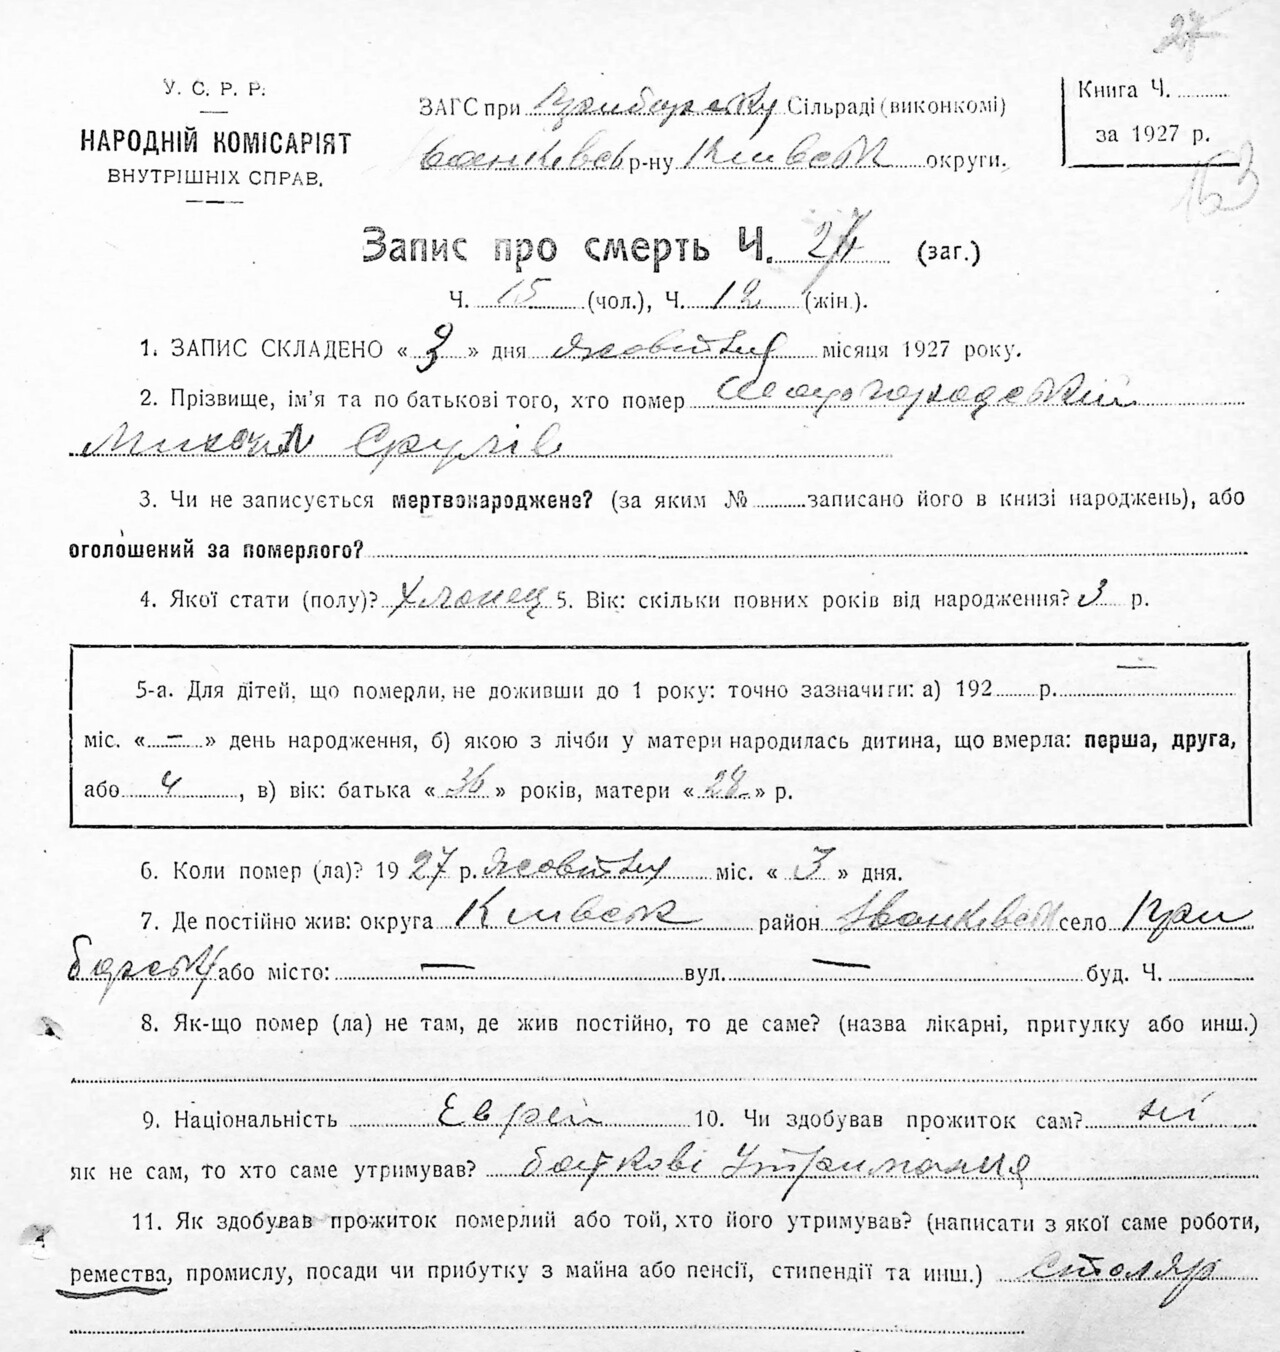 27
У. С. Р. Р.
НАРОДНІЙ КОМІСАРІЯТ
ВНУТРІШНІХ СПРАВ.
ЗАГС при Прибірську Сільраді (виконкомі)
р-ну Київськ округи.
Книга Ч.
за 1927 р.
163
Запис про смерть Ч. 27 (заг.)
Ч. 15 (чол.), Ч. 12 (жін.).
1. ЗАПИС СКЛАДЕНО « 3 » дня жовтня місяця 1927 року.
2. Прізвище, ім'я та по батькові того, хто помер
Срулів
3. Чи не записується мертвонароджене? (за яким № записано його в книзі народжень), або
оголошений за померлого?
4. Якої стати (полу)? хлопец 5. Вік: скільки повних років від народження? 3 р.
5-а. Для дітей, що померли, не доживши до 1 року: точно зазначити: а) 192 р. —
міс. « — » день народження, б) якою з лічби у матери народилась дитина, що вмерла: перша, друга,
або 4, в) вік: батька « 36 » років, матери « 28 » р.
6. Коли помер (ла)? 1927 р. жовтня міс. « 3 » дня.
7. Де постійно жив: округа Київськ район Іванківськ село При
борськ або місто: — вул. — буд. Ч.
8. Як-що помер (ла) не там, де жив постійно, то де саме? (назва лікарні, притулку або инш.)
9. Національність Еврей 10. Чи здобував прожиток сам? ні
як не сам, то хто саме утримував? баткові утримання
11. Як здобував прожиток померлий або той, хто його утримував? (написати з якої саме роботи,
ремества, промислу, посади чи прибутку з майна або пенсії, стипендії та инш.) столяр